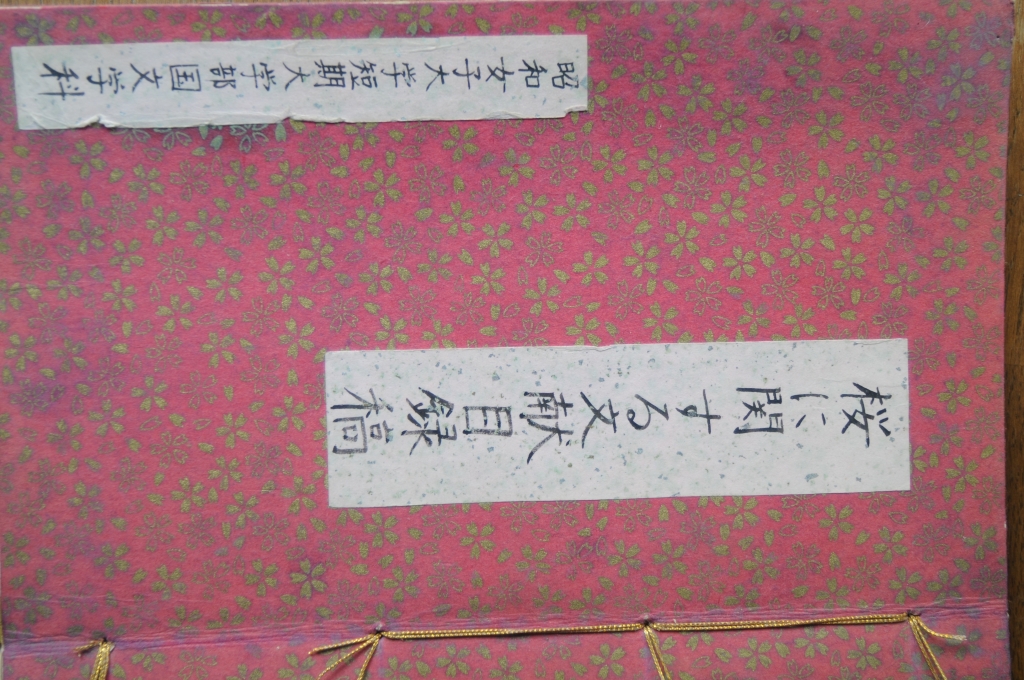 桜に関する文献目録稿
昭和女子大学短期大学部国文学科